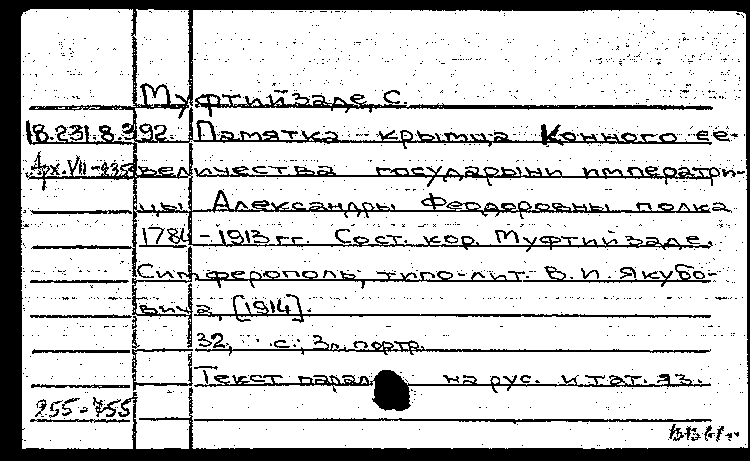 Муфтийзаде, С
18.231.8.392. Памятка - крымца Конного ее-
Арх. VII - величества государыни императри-
цы Александры Феодоровны полка
1784-1913 гг. Сост. кор. Муфтийзаде.
Симферополь, типо-лит. В. И. Якубо-
вича, [1914].
32, с.; 3 л. портр.
Текст парал на рус. и тат. яз.
255-755